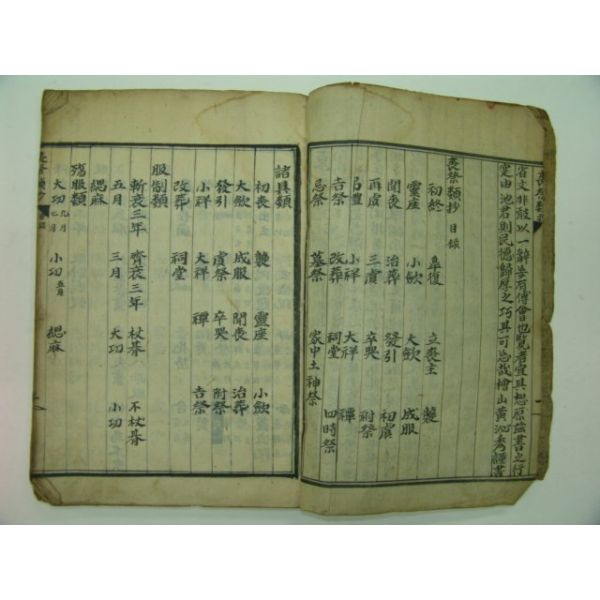 省文非敢以一辭妄有傅會也覽者宜具想原玆書之行
寔由池君則民德歸厚之巧其可忘哉檜山黃泌秀謹書
喪祭類抄 目錄
初終 皐復 立喪主 襲
靈座 小斂 大斂 成服
聞喪 治葬 發引 初虞
再虞 三虞 卒哭 祔祭
弔禮 小祥 大祥 禫
吉祭 改葬 祠堂 四時祭
忌祭 墓祭 家中土神祭
諸具類
初喪 襲 靈座 小斂
大斂 成服 聞喪 治葬
發引 虞祭 卒哭 祔祭
小祥 大祥 禫 吉祭
改葬 祠堂
服制類
斬衰三年 齊衰三年 杖朞 不杖朞
五月 三月 大功 小功
緦麻
殤服類
大功 九月 七月 小功 五月 緦麻